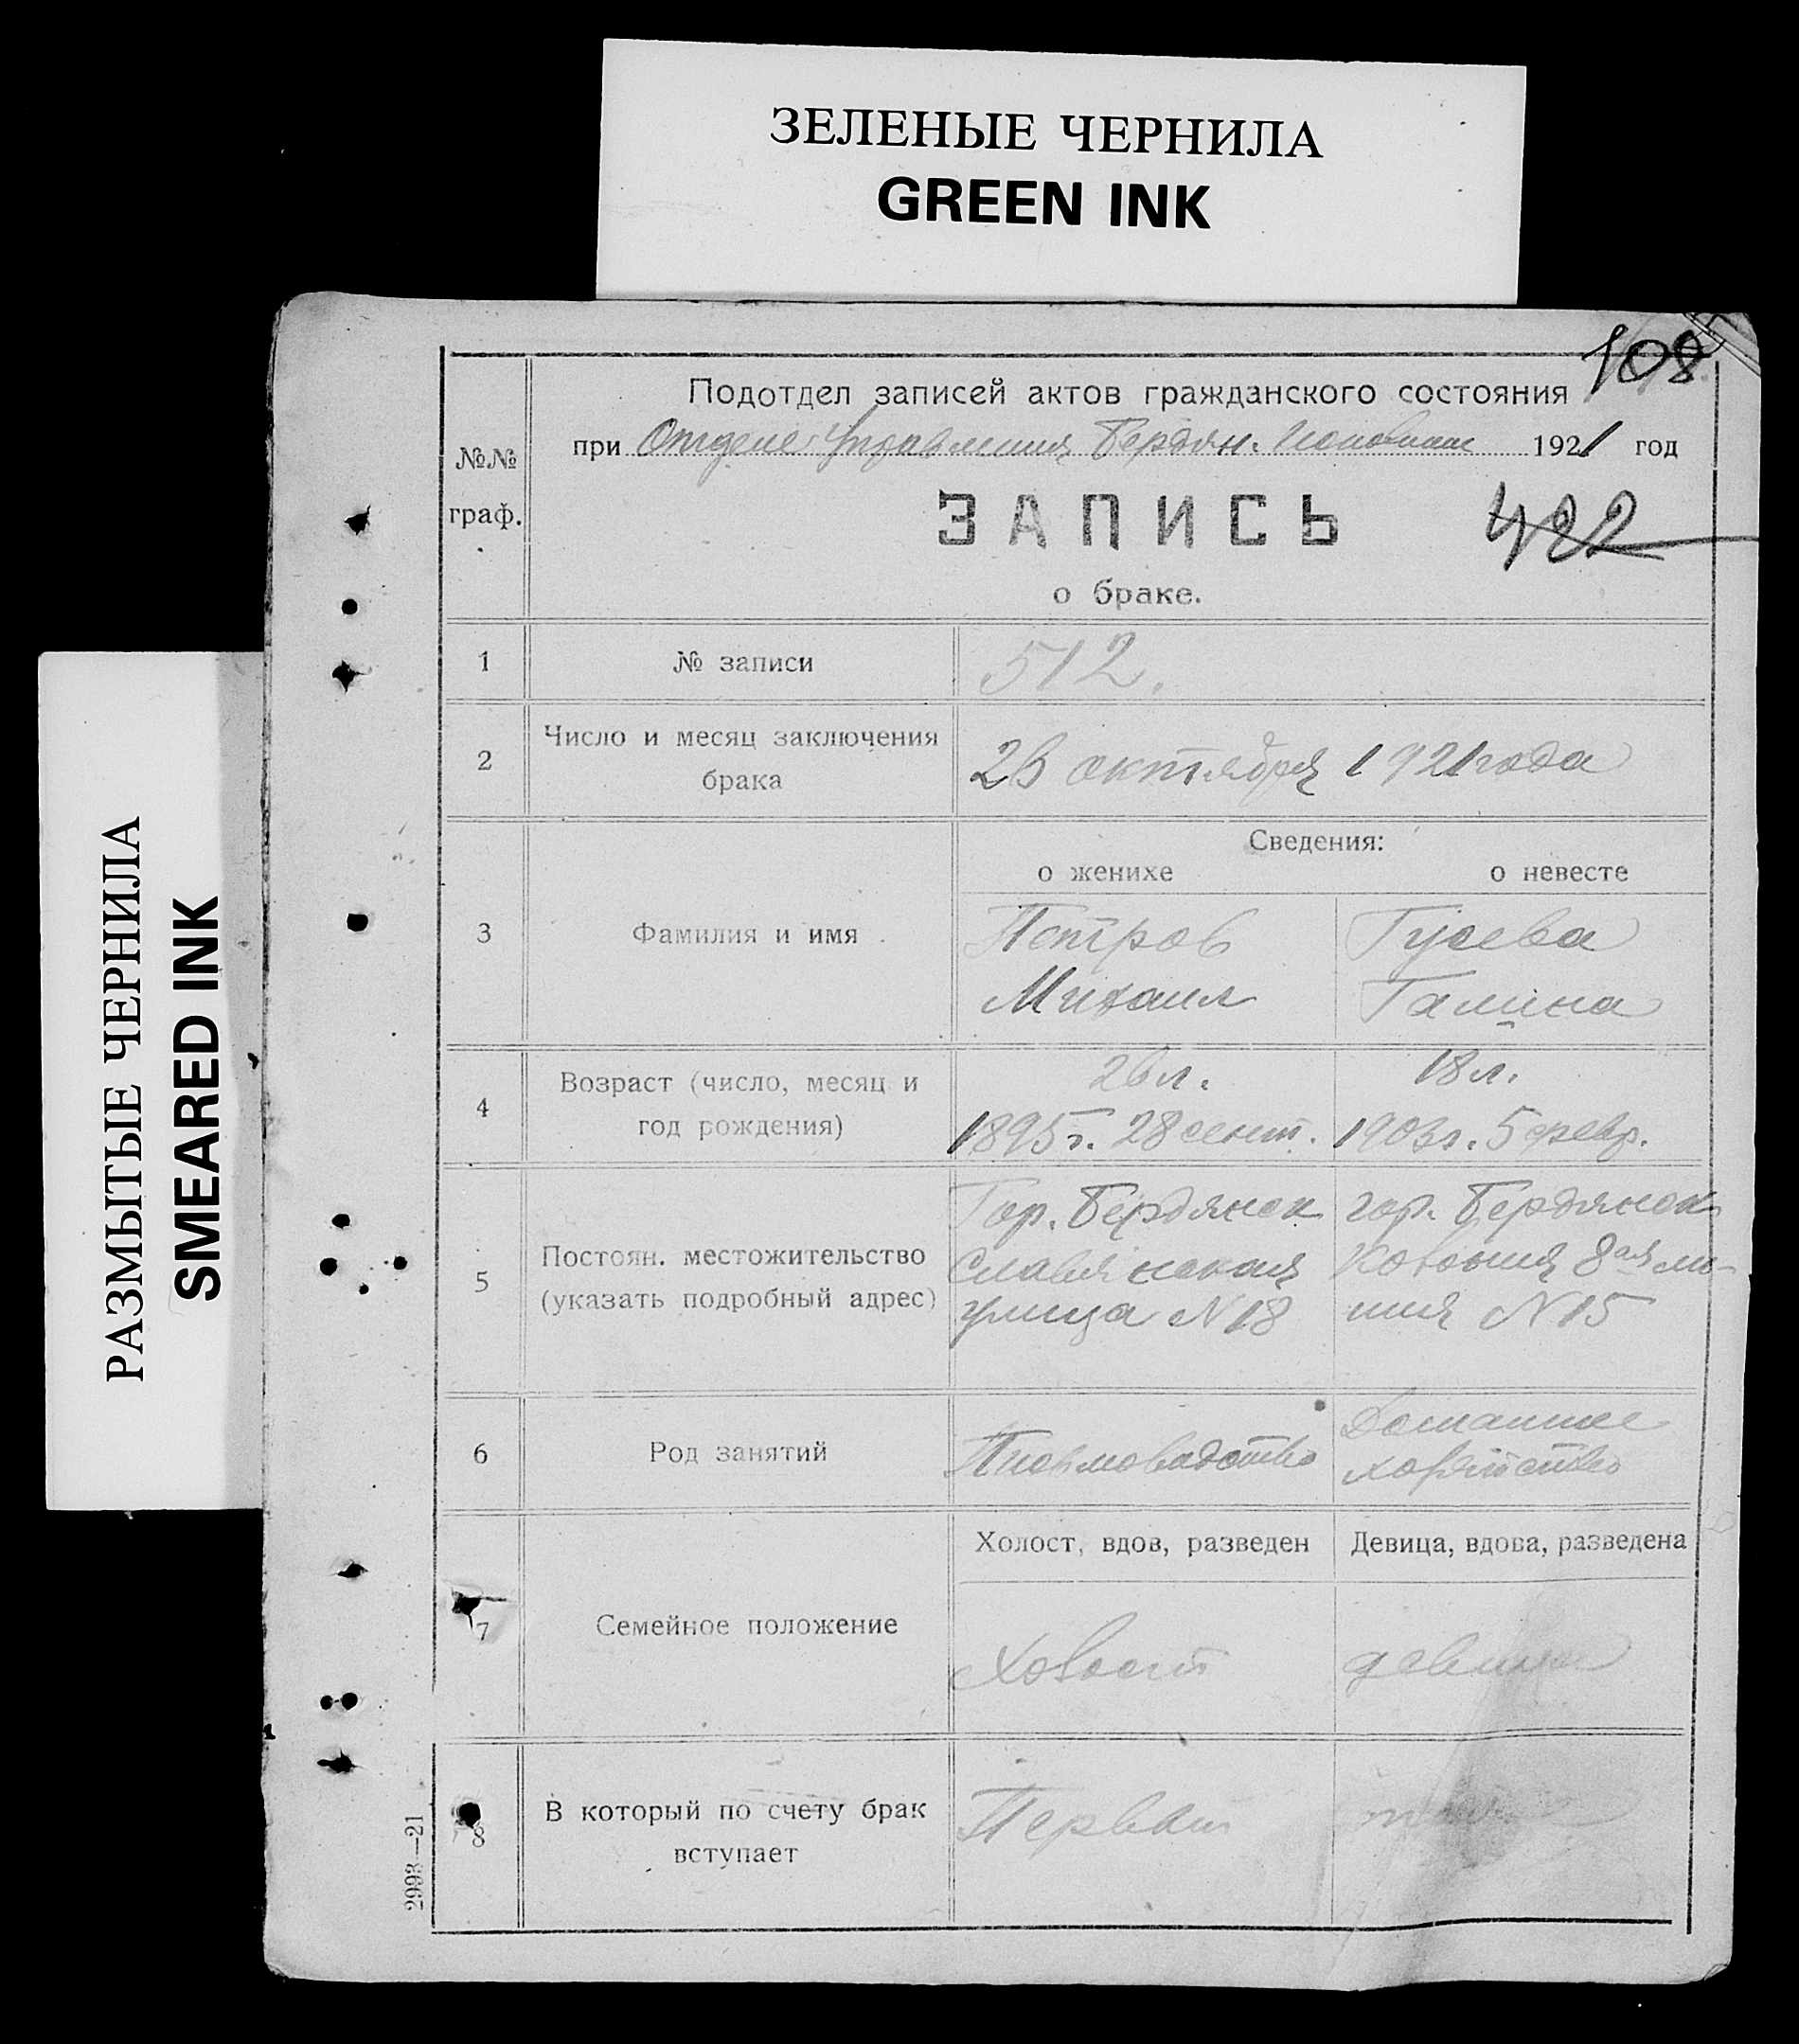 ЗЕЛЕНЫЕ ЧЕРНИЛА
GREEN INK
РАЗМЫТЫЕ ЧЕРНИЛА
SMEARED INK
108
Подотдел записей актов гражданского состояния
при Отделе Управления Бердян. 1921 год
№№ граф.
ЗАПИСЬ
482
о браке.
1 № записи 512.
2 Число и месяц заключения брака
26 октября 1921 года
Сведения:
о женихе о невесте
3 Фамилия и имя
Петров Гусева
Михаил Галина
4 Возраст (число, месяц и год рождения)
26 л. 18 л.
1895 г. 28 сент. 1903 г. 5 февр.
5 Постоян. местожительство (указать подробный адрес)
Гор. Бердянск гор. Бердянск
Славянская 8ая ли-
улица N 18 ния N 15
6 Род занятий
Письмоводство Домашнее
хозяйство
Холост, вдов, разведен Девица, вдова, разведена
7 Семейное положение
Холост девица
8 В который по счету брак вступает
Первый
2993—21